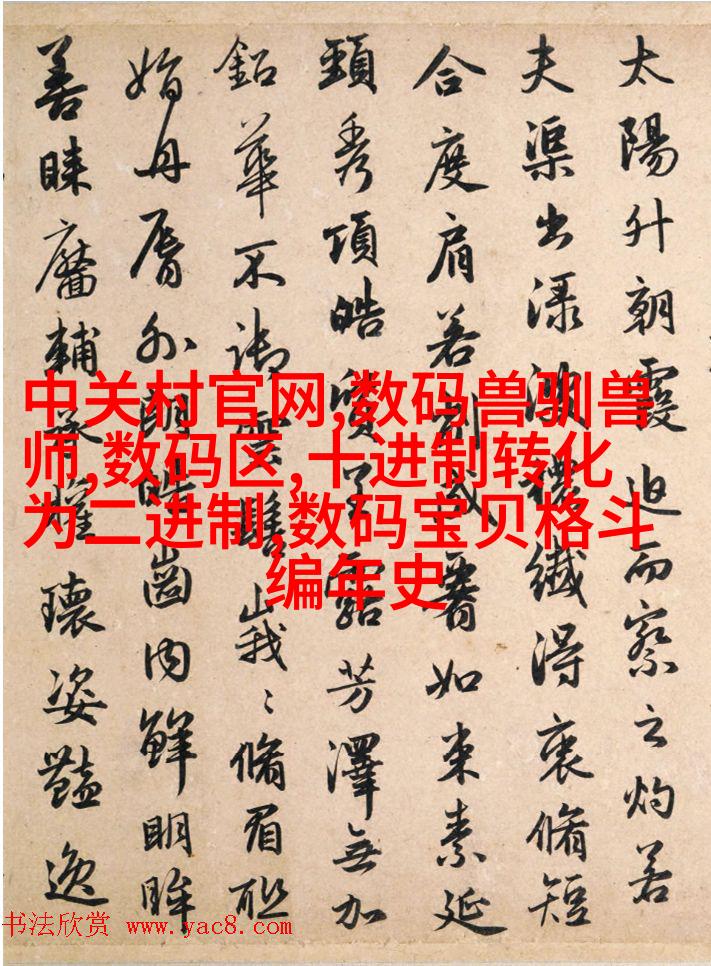 太陽升朝霞迫而察之灼若
夫渠出渌波穠纖得衷脩短
合度肩若削成如束素延
頸秀項皓質呈露芳澤無加
鉛華不御雲髻峩〻脩眉聯
娟丹脣外朗皓齒内鮮明眸
善睞靨輔承權瓌姿豔逸
中关村官网,数码兽驯兽
师,数码区,十进制转化
为二进制,数码宝贝格斗
编年史
书法欣赏 www.yac8.com